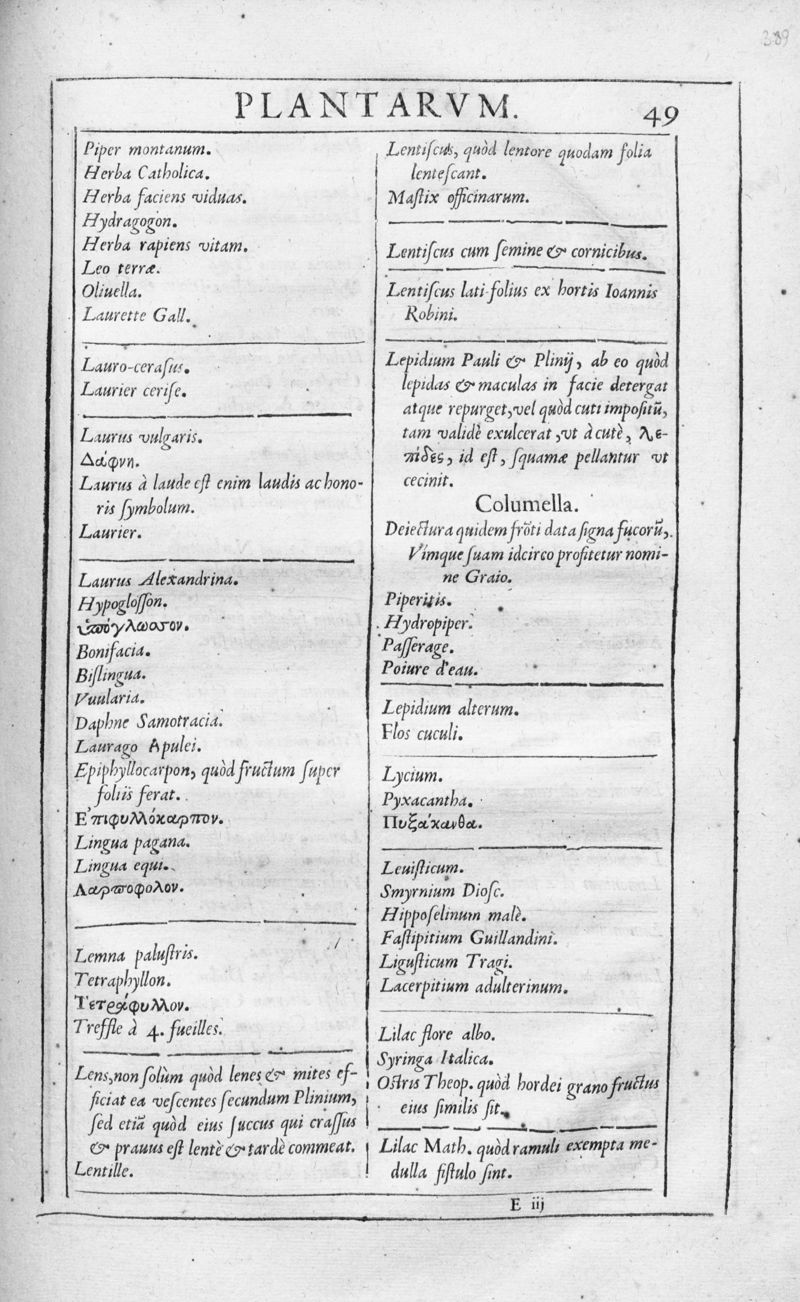 389
PLANTARVM.
49
Piper montanum.
Herba Catholica.
Herba faciens viduas.
Hydragogon.
Herba rapiens vitam.
Leo terræ.
Oliuella.
Laurette Gall.
Lauro-cerasus.
Laurier cerise.
Laurus vulgaris.
Δάφνη.
Laurus à laude est enim laudis ac hono-
ris symbolum.
Laurier.
Laurus Alexandrina.
Hypoglosson.
ὑπόγλωσσον.
Bonifacia.
Bislingua.
Vuularia.
Daphne Samotracia.
Laurago Apulei.
Epiphyllocarpon, quòd fructum super
foliis ferat.
Ἐπιφυλλόκαρπον.
Lingua pagana.
Lingua equi.
Λαρποφολον.
Lemna palustris.
Tetraphyllon.
Τετράφυλλον.
Treffle à 4. fueilles.
Lens, non solùm quòd lenes & mites ef-
ficiat ea vescentes secundum Plinium,
sed etiã quòd eius succus qui crassus
& prauus est lentè & tardè commeat.
Lentille.
Lentiscus, quòd lentore quodam folia
lentescant.
Mastix officinarum.
Lentiscus cum semine & cornicibus.
Lentiscus lati-folius ex hortis Ioannis
Robini.
Lepidium Pauli & Plinij, ab eo quòd
lepidas & maculas in facie detergat
atque repurget, vel quòd cuti impositũ,
tam validè exulcerat, vt à cutè, λε-
πίδες, id est, squamæ pellantur vt
cecinit.
Columella.
Deiectura quidem frõti data signa fucorũ,
Vimque suam idcirco profitetur nomi-
ne Graio.
Piperitis.
Hydropiper.
Passerage.
Poiure d'eau.
Lepidium alterum.
Flos cuculi.
Lycium.
Pyxacantha.
Πυξάκανθα.
Leuisticum.
Smyrnium Diosc.
Hipposelinum malè.
Fastipitium Guillandini.
Ligusticum Tragi.
Lacerpitium adulterinum.
Lilac flore albo.
Syringa Italica.
Ostris Theop. quòd hordei grano fructus
eius similis sit.
Lilac Math. quòd ramuli exempta me-
dulla fistulo sint.
E iij